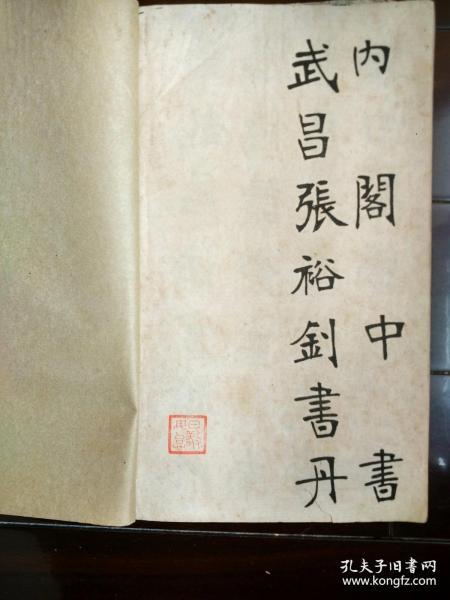 内閣中書
武昌張裕釗書丹
孔夫子旧书网
www.kongfz.com